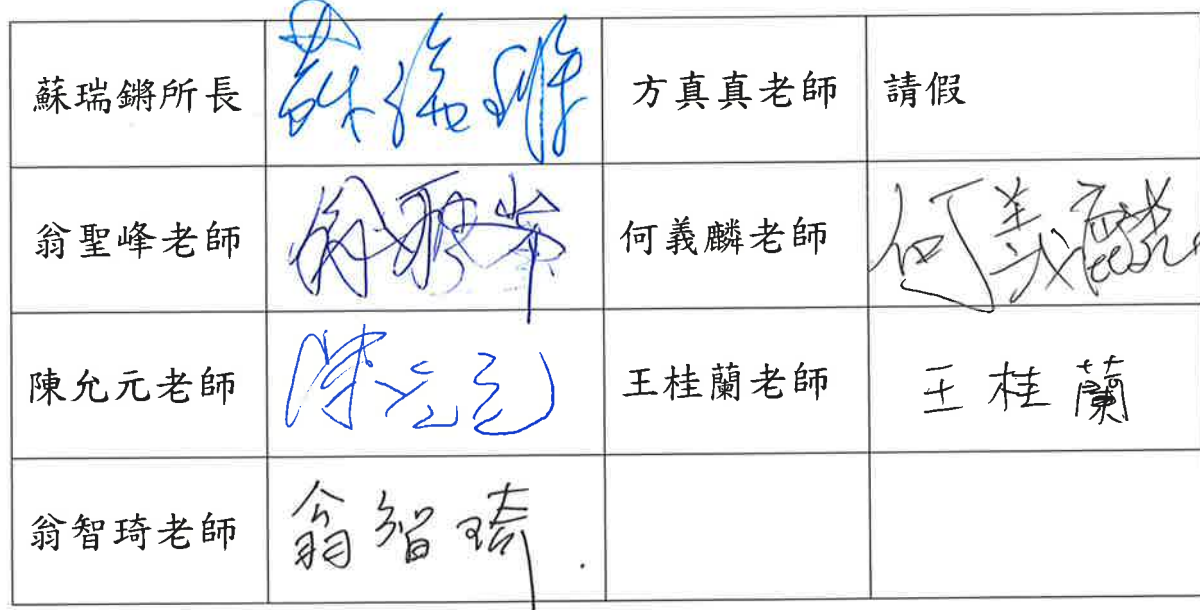 蘇瑞鏘所長 蘇瑞鏘 方真真老師 請假
翁聖峰老師 翁聖峰 何義麟老師 何義麟
陳允元老師 陳允元 王桂蘭老師 王桂蘭
翁智琦老師 翁智琦